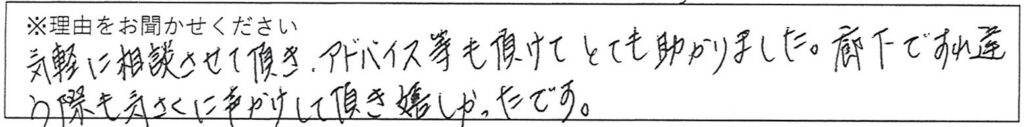 ※理由をお聞かせください
気軽に相談させて頂き、アドバイス等も頂けてとても助かりました。廊下ですれ違
う際も気さくに声かけして頂き嬉しかったです。